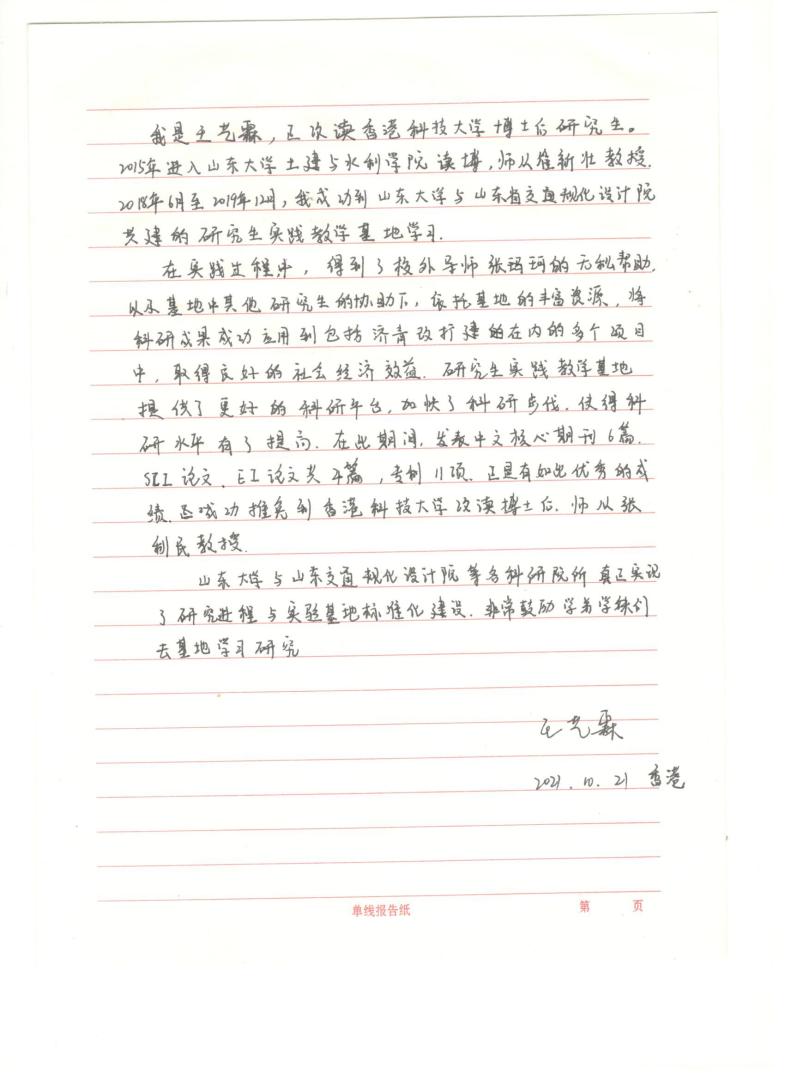 我是王艺霖，正攻读香港科技大学博士后研究生。
2015年进入山东大学土建与水利学院读博，师从崔新壮教授.
2018年6月至2019年12月，我成功到山东大学与山东省交通规化设计院
共建的研究生实践教学基地学习.
在实践过程中，得到了校外导师张珂的无私帮助.
以及基地中其他研究生的协助下，依托基地的丰富资源，将
科研成果成功应用到包括济青改扩建的在内的多个项目
中，取得良好的社会经济效益.研究生实践教学基地
提供了更好的科研平台，加快了科研步伐.使得科
研水平有了提高.在此期间，发表中文核心期刊6篇.
SCI论文、EI论文共4篇，专利11项.正是有如此优秀的成
绩.还成功推免到香港科技大学攻读博士后.师从张
利民教授.
山东大学与山东交通规化设计院等各科研院所真正实现
了研究进程与实验基地标准化建设.非常鼓励学弟学妹们
去基地学习研究
王艺霖
2021.10.21 香港
单线报告纸 第 页